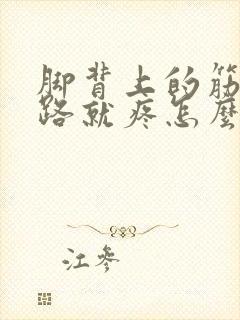 脚背上的筋
路就疼怎麽
江参